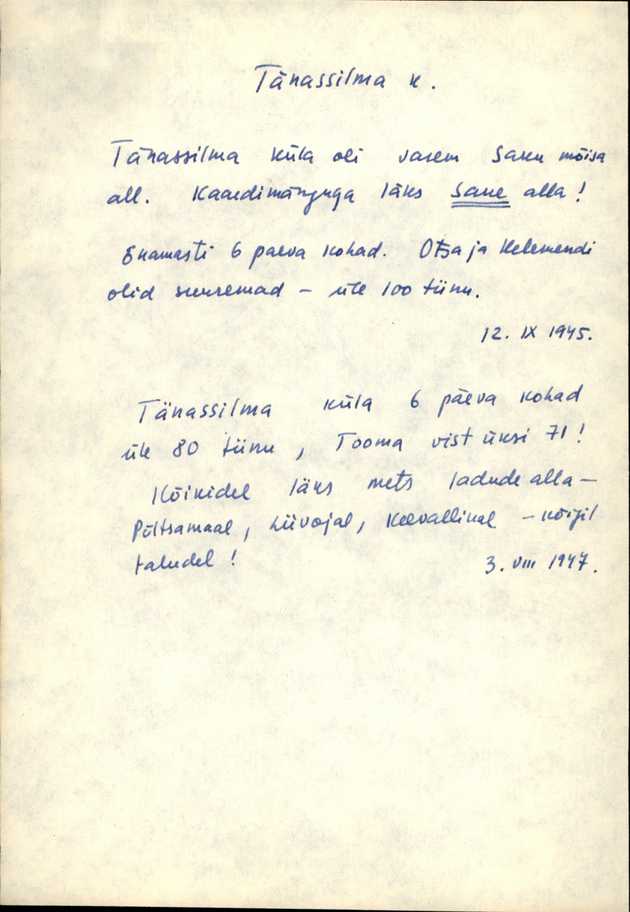 Tänassilma k.
Tänassilma küla oli varem Saku mõisa
all. Kaardimänguga läks Saue alla!
Enamasti 6 päeva kohad. Otsa ja Kelemendi
olid suuremad – üle 100 tiinu.
12. IX 1945.
Tänassilma küla 6 päeva kohad
üle 80 tiinu, Tooma vist üksi 71!
Kõikidel läks mets ladude alla –
Põltsamaal, Liivojal, Keevallikal – kõigil
taludel!
3. VIII 1947.